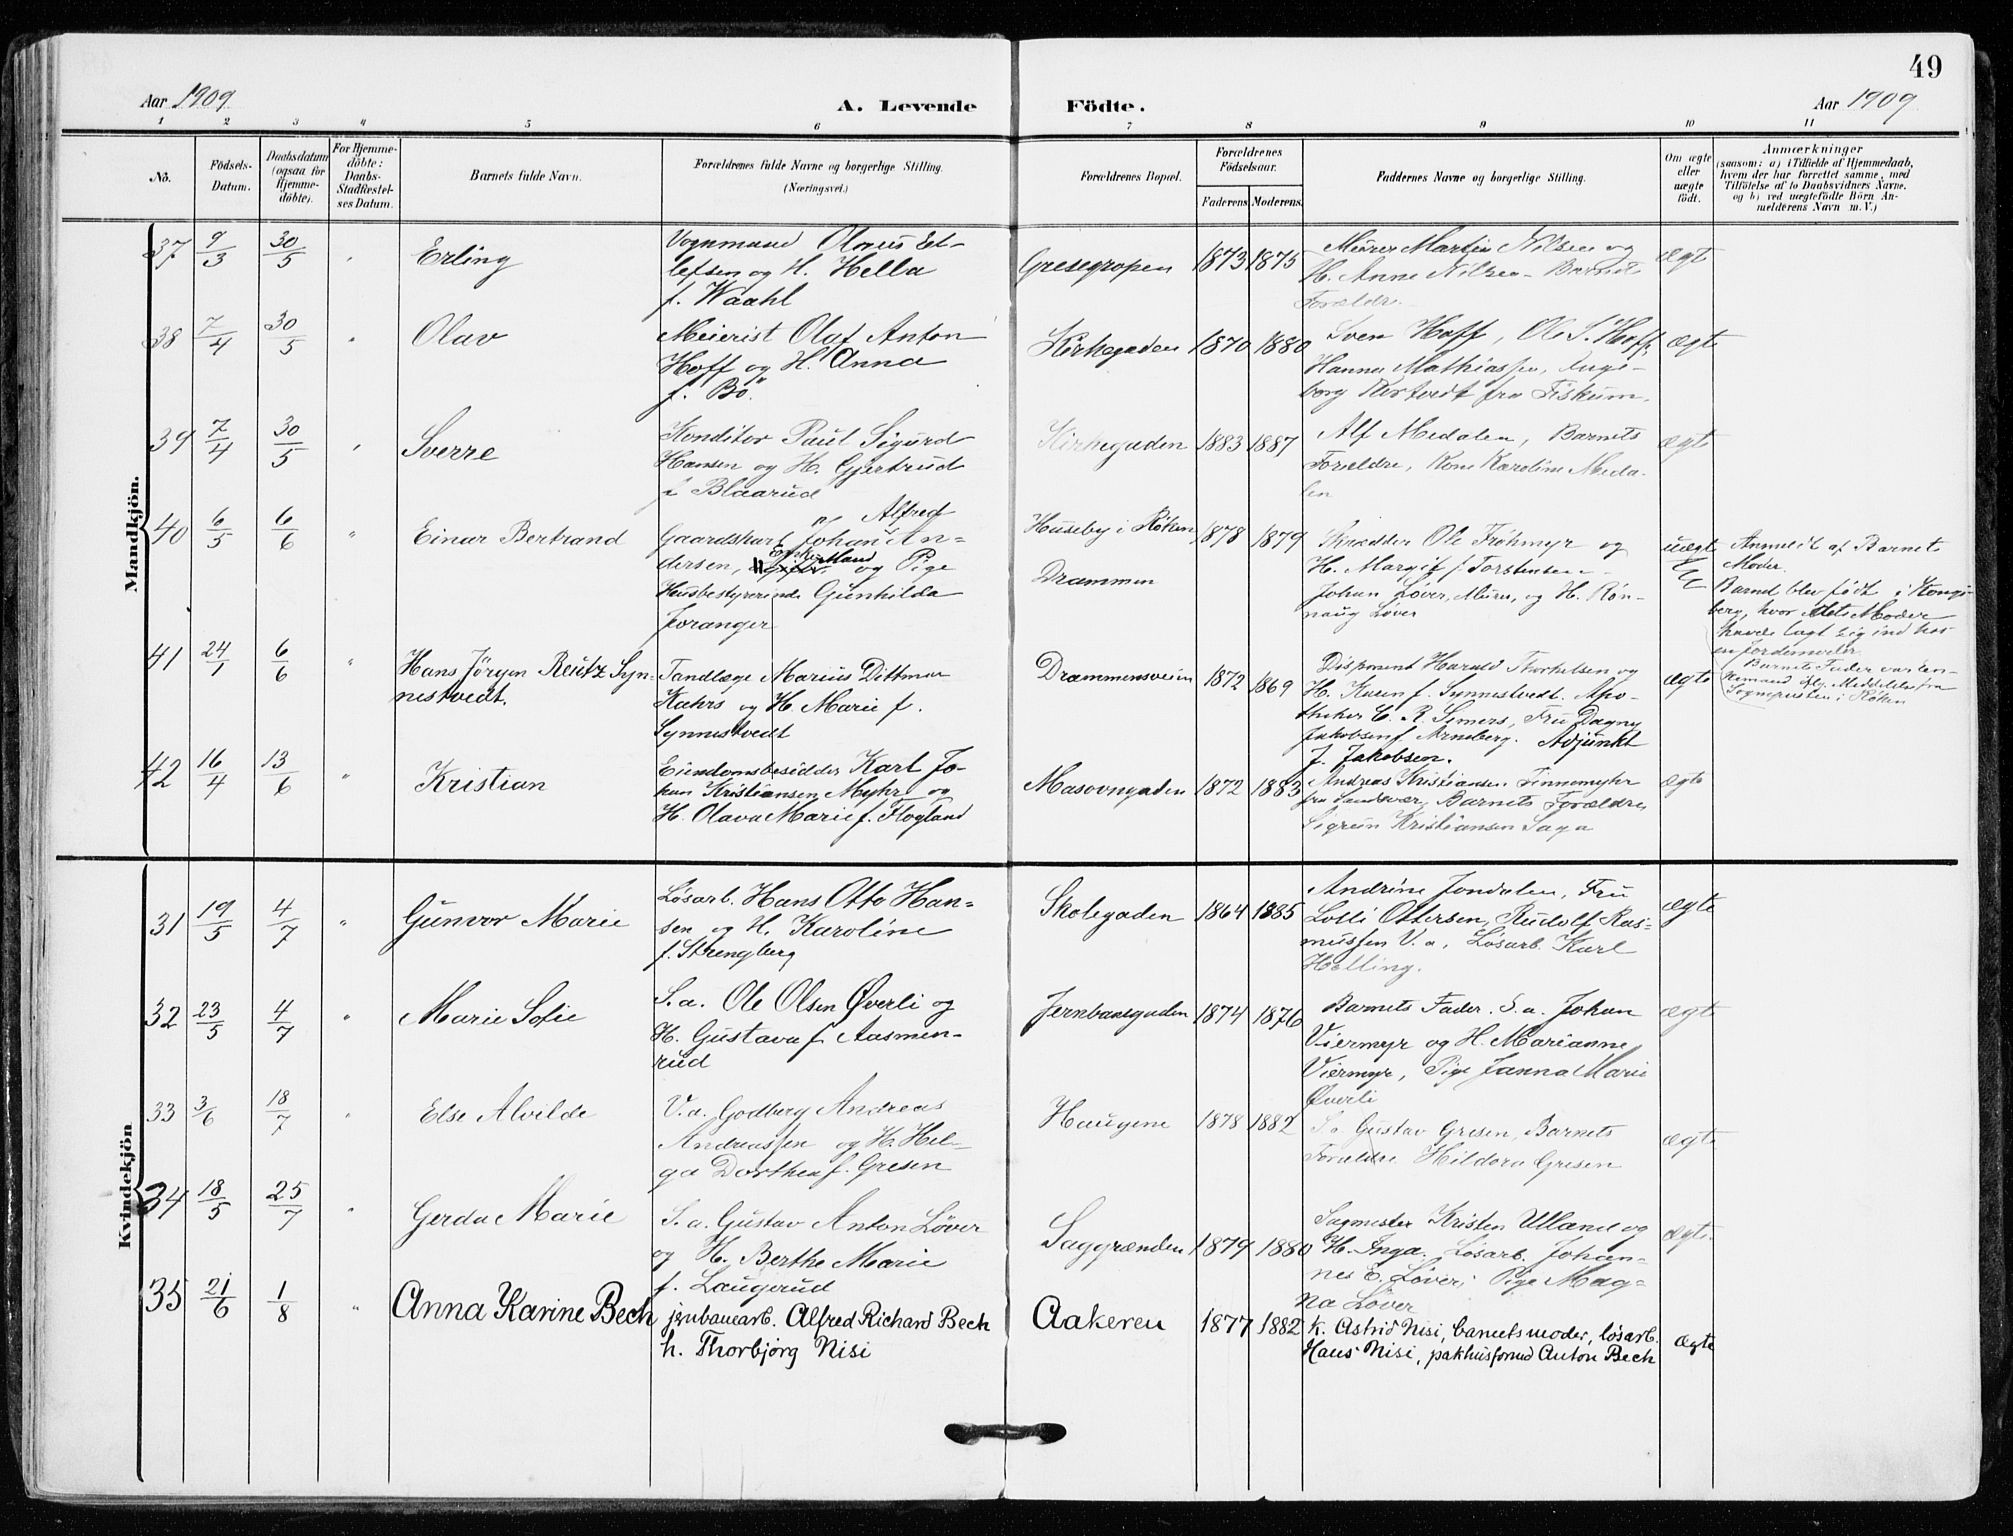 49
Aar 1909
A. Levende Födte.
Aar 1909
1 2 3 4 5 6 7 8 9 10 11
No.
Födsels-
Datum.
Daabsdatum
(ogsaa for
Hjemme-
döbte).
For Hjemme-
döbte:
Daabs-
Stadfæstel-
ses Datum.
Barnets fulde Navn.
Forældrenes fulde Navne og borgerlige Stilling.
(Næringsvei.)
Forældrenes Bopæl.
Forældrenes
Födselsaar.
Faderens Moderens.
Faddernes Navne og borgerlige Stilling.
Om ægte
eller
uægte
födt.
Anmærkninger
(saasom: a) i Tilfælde af Hjemmedaab,
hvem der har forrettet samme, med
Tilföielse af to Daabsvidners Navne.
og b) ved uægtefödte Börn An-
melderens Navn m. V.)
Mandkjön.
37 9/3 30/5 " Erling
Vognmand Olaus El-
lefsen og H. Hella
f. Waahl
Gresegropen 1873 1875
Murer Martin Nilsen og
H. Anne Nilsen - Barnets
Forældre.
ægte
38 7/4 30/5 " Olav
Meierist Olaf Anton
Hoff og H. Anna
f. Bö.
Kirkegaden 1870 1880
Sven Hoff, Ole S. Hoff,
Hanna Mathiassen, Inge-
borg Kortvedt fra Fiskum.
ægte
39 7/4 30/5 " Sverre
Konditor Paul Sigurd
Hansen og H. Gjertrud
f. Blaarud
Kirkegaden 1883 1887
Alf Medalen, Barnets
Forældre, Kone Karoline Meda-
len
ægte
40 6/5 6/6 " Einar Bertrand
Alfred
Gaardskarl Johan An-
dersen, Enkemand og Pige
Husbestyrerinde Gunhilda
Foranger
Huseby i Røken
Drammen
1878 1879
Skrædder Ole Fröhmyr og
H. Margit f. Torstensen -
Johan Løver, Murer, og H. Røn-
naug Løver
uægte
Anmeldt af Barnets
Moder.
Barnet blev født i Kongs-
berg, hvor dets Moder
havde lagt sig ind hos
en Jordemoder.
Barnets Fader var En-
kemand iflg. Meddelelse fra
Sognepresten i Røken
41 24/1 6/6 " Hans Jörgen Reutz Syn-
nestvedt.
Tandlæge Marius Dittmar
Kahrs og H. Marie f.
Synnestvedt
Drammensveien 1872 1869
Disponent Harald Thorkelsen og
H. Karen f. Synnestvedt. Apo-
theker C. R. Semers, Fru Dagny
Jakobsen f. Arneberg. Adjunkt
J. Jakobsen.
ægte
42 16/4 13/6 " Kristian
Eiendomsbesidder Karl Jo-
han Kristiansen Myhr og
H. Olava Marie f. Flogland
Masovngaden 1872 1883
Andreas Kristiansen Finnemyhr
fra Sandsvær, Barnets Forældre,
Sigrun Kristiansen Saga
ægte
Kvindekjön
31 19/5 4/7 " Gunvor Marie
Løsarb. Hans Otto Han-
sen og H. Karoline
f. Strengberg
Skolegaden 1864 1885
Andrine Jondalen, Fru
Lolli Ottersen, Rudolf Ras-
mussen V. a., Løsarb. Karl
Helling.
ægte
32 23/5 4/7 " Marie Sofie
S. a. Ole Olsen Øverli og
H. Gustava f. Aasmen-
rud
Jernbanegaden 1874 1876
Barnets Fader. S. a. Johan
Viermyr og H. Marianne
Viermyr, Pige Janna Marie
Øverli
ægte
33 3/6 18/7 " Else Alvilde
V. a. Godberg Andreas
Andreassen og H. Hel-
ga Dorthea f. Gresen
Haugene 1878 1882
S. a. Gustav Gresen, Barnets
Forældre Hildora Gresen
ægte
34 18/5 25/7 " Gerda Marie
S. a. Gustav Anton Løver
og H. Berthe Marie
f. Laugerud
Saggrænden 1879 1880
Sagmester Kristen Ulland og
H. Inga. Løsarb. Johan-
nes E. Løver, Pige Mag-
na Løver
ægte.
35 21/6 1/8 " Anna Karine Bech
jernbanearb. Alfred Richard Bech
h. Thorbjørg Nisi
Aakeren 1877 1882
k. Astrid Nisi, barnets moder, løsarb.
Hans Nisi, pakhusformd Anton Bech
ægte